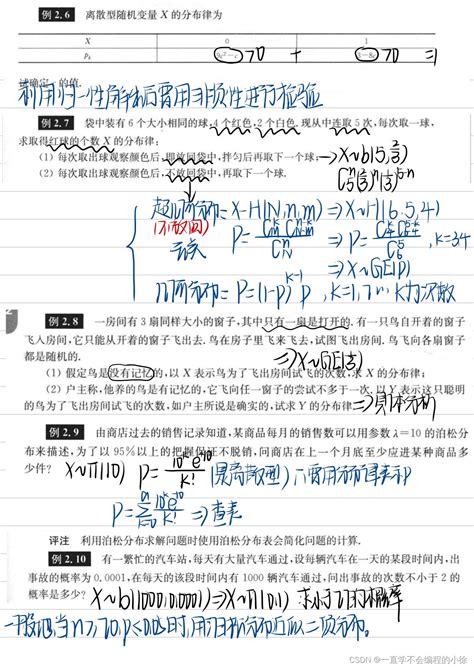 例 2.6 离散型随机变量 X 的分布律为
X 0 1
pk 9c²-c >0 + 3-8c >0 =1
试确定c的值.
利用归一性解c后需用非负性进行检验
例 2.7 袋中装有 6 个大小相同的球,4 个红色,2 个白色. 现从中连取 5 次,每次取一球,
求取得红球的个数 X 的分布律:
(1) 每次取出球观察颜色后,即放回袋中,拌匀后再取下一个球; ⇒X~b(5,2/3)
(2) 每次取出球观察颜色后,不放回袋中,再取下一个球.
超几何分布= X-H(N,n,m) ⇒X~H(6,5,4)
(不放回)
P= ⇒P= , k=3,4
⇒X~GE(P)
几何分布=P=(1-p)^(k-1) p, k=1,2,…, k为次数
例 2.8 一房间有 3 扇同样大小的窗子,其中只有一扇是打开的. 有一只鸟自开着的窗子
飞入房间,它只能从开着的窗子飞出去. 鸟在房子里飞来飞去,试图飞出房间. 鸟飞向各扇窗子
都是随机的. ⇒X~GE(1/3)
(1) 假定鸟是没有记忆的,以 X 表示鸟为了飞出房间试飞的次数,求 X 的分布律;
(2) 户主称,他养的鸟是有记忆的,它飞向任一窗子的尝试不多于一次. 以 Y 表示这只聪明
的鸟为了飞出房间试飞的次数,如户主所说是确实的,试求 Y 的分布律. ⇒具体分析
例 2.9 由商店过去的销售记录知道,某商品每月的销售数可以用参数 λ=10 的泊松分
布来描述,为了以 95%以上的把握保证不脱销,问商店在上一个月底至少应进某种商品多
少件? X~π(10) P= 10^k e^-10 / k! (是离散型)
P= Σ 10^k e^-10 / k! ⇒查表
评注 利用泊松分布求解问题时使用泊松分布表会简化问题的计算.
例 2.10 有一繁忙的汽车站,每天有大量汽车通过,设每辆汽车在一天的某段时间内,出
事故的概率为 0.0001,在每天的该段时间内有 1000 辆汽车通过,问出事故的次数不小于 2 的
概率是多少? X~b(1000,0.0001)⇒X~π(0.1) 求 的概率
一般地,当n≥20,p≤0.05时,用泊松分布近似二项分布。
CSDN @一直学不会编程的小徐